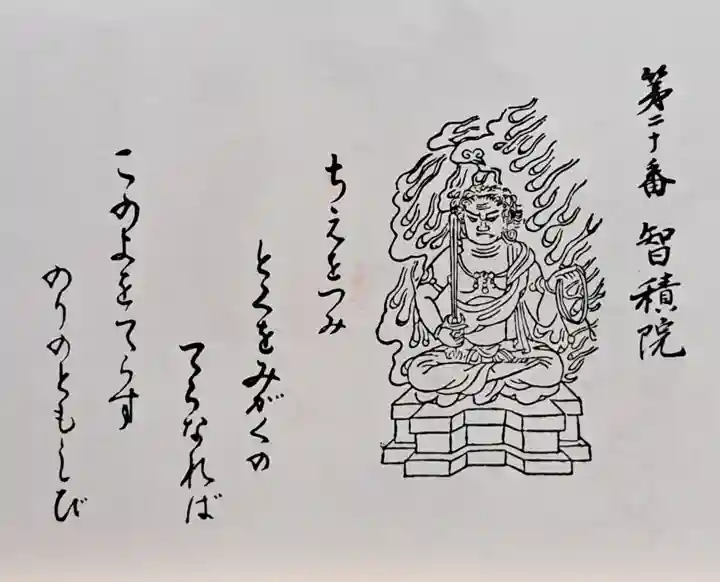 第二十番 智積院
ちえをつみ
とくをみがくの
てらなれば
このよをてらす
のりのともしび